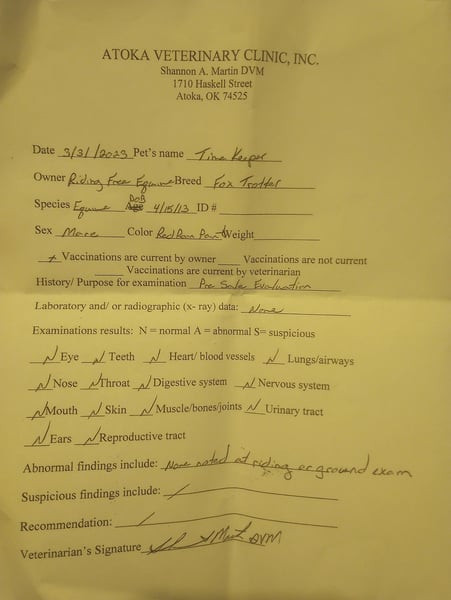 ATOKA VETERINARY CLINIC, INC.
Shannon A. Martin DVM
1710 Haskell Street
Atoka, OK 74525
Date 3/31/2023 Pet's name Time Keeper
Owner Riding Free Equine Breed Fox Trotter
Species Equine DOB Age 4/15/13 ID #
Sex Mare Color Red Roan Paint Weight
+ Vaccinations are current by owner ___ Vaccinations are not current
___ Vaccinations are current by veterinarian
History/ Purpose for examination Pre Sale Evaluation
Laboratory and/ or radiographic (x- ray) data: None
Examinations results: N = normal A = abnormal S= suspicious
N Eye N Teeth N Heart/ blood vessels N Lungs/airways
N Nose N Throat N Digestive system N Nervous system
N Mouth N Skin N Muscle/bones/joints N Urinary tract
N Ears N Reproductive tract
Abnormal findings include: None noted at riding or ground exam
Suspicious findings include: /
Recommendation: /
Veterinarian's Signature DVM